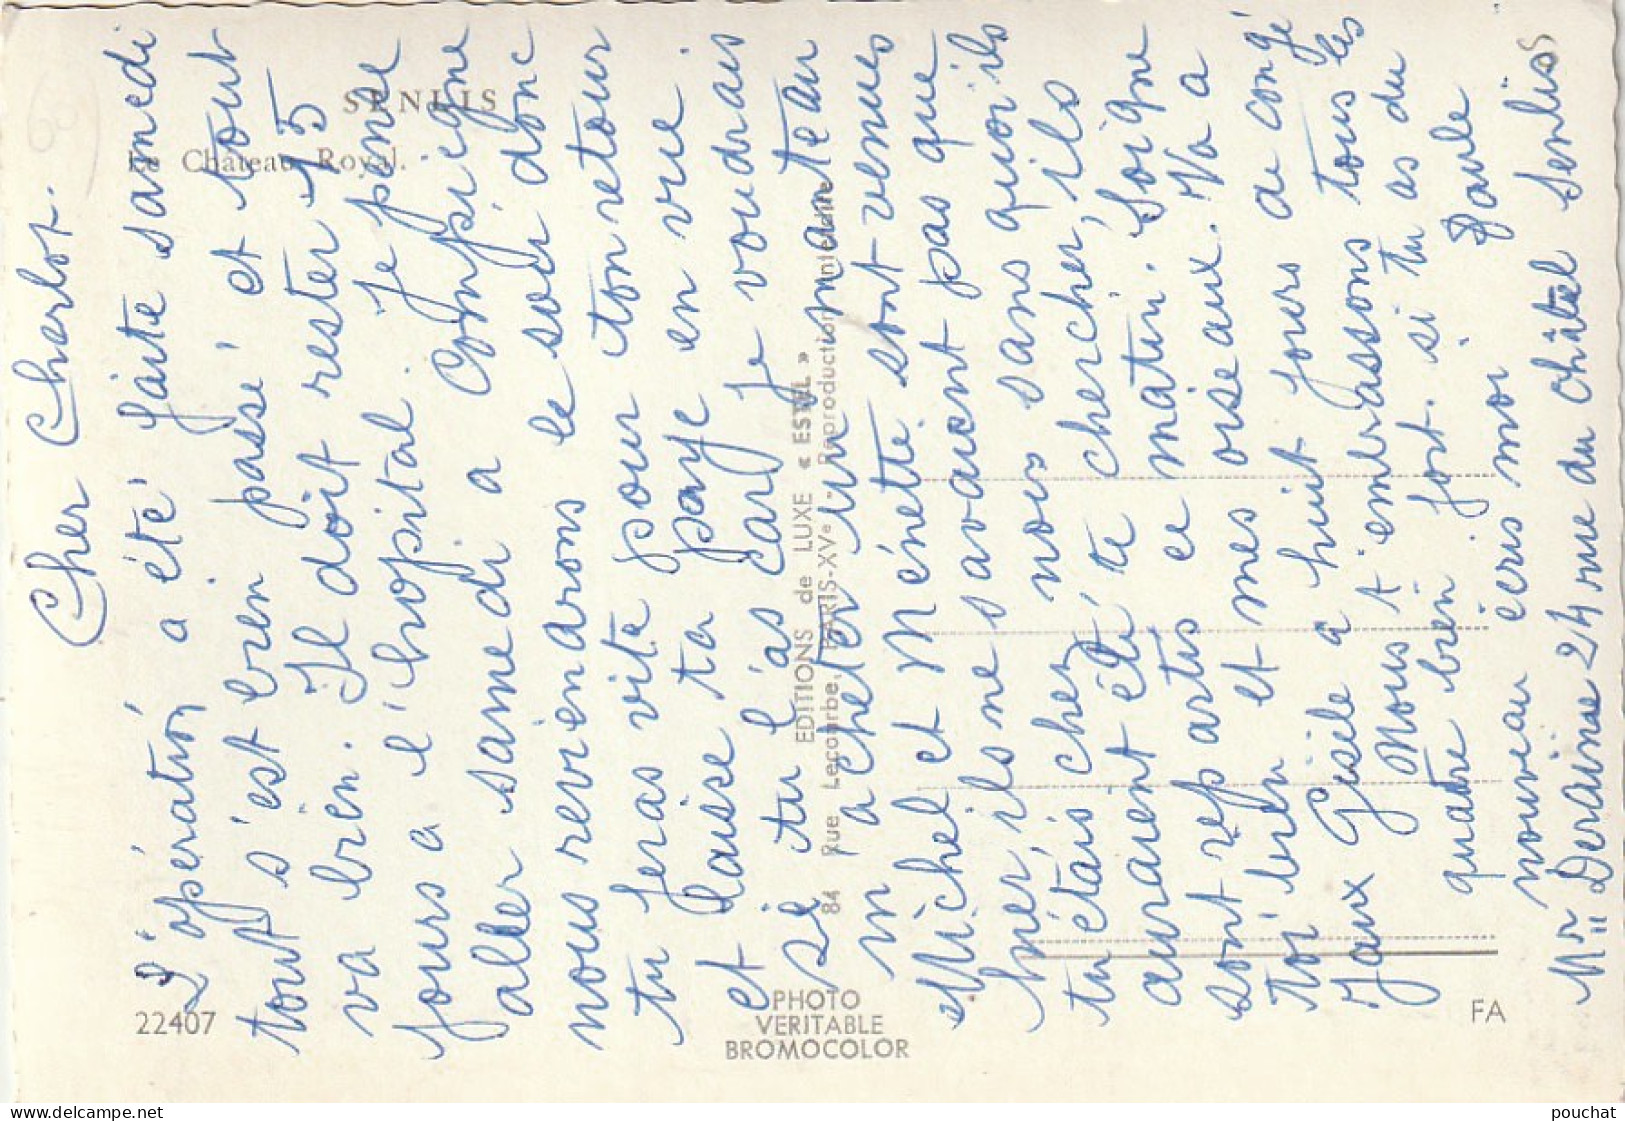 SENLIS
Le Château Royal.
Cher Charlot.
L'opération a été faite samedi
tout s'est bien passé et tout
va bien. Il doit rester 15
jours a l'hopital. Je pense
aller samedi a Compiegne
nous reviendrons le soir donc
tu feras vite pour ton retour
et laisse ta paye en vue.
Si tu l'as car je voudrais
m acheter un manteau
Michel et Ménette sont venues
hier, ils ne savaient pas que
tu étais chez nous sans quoi ils
auraient été te chercher, ils
sont repartis ce matin. Soigne
Toi bien et mes oiseaux. Va a
Gisèle a huit jours de congé
Nous t'embrassons tous les
quatre bien fort. si tu as du
nouveau écris moi Paule
Mr Deraine 24 rue du Châtel Senlis
22407
PHOTO
VERITABLE
BROMOCOLOR
EDITIONS de LUXE « ESTEL »
84 Rue Lecourbe, PARIS-XVe - Reproduction interdite
FA
www.delcampe.net
pouchat